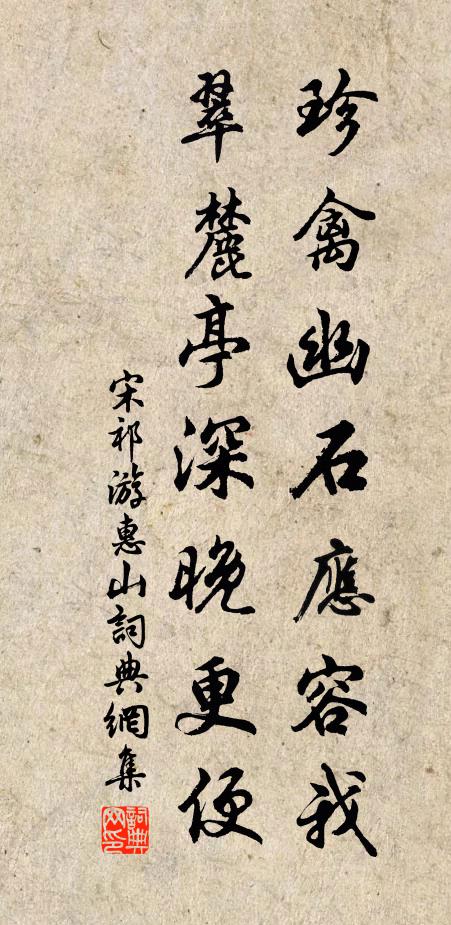 珍禽幽石應容我
翠麓亭深晚更便
宋祁游惠山詞典網集
詞典
网印